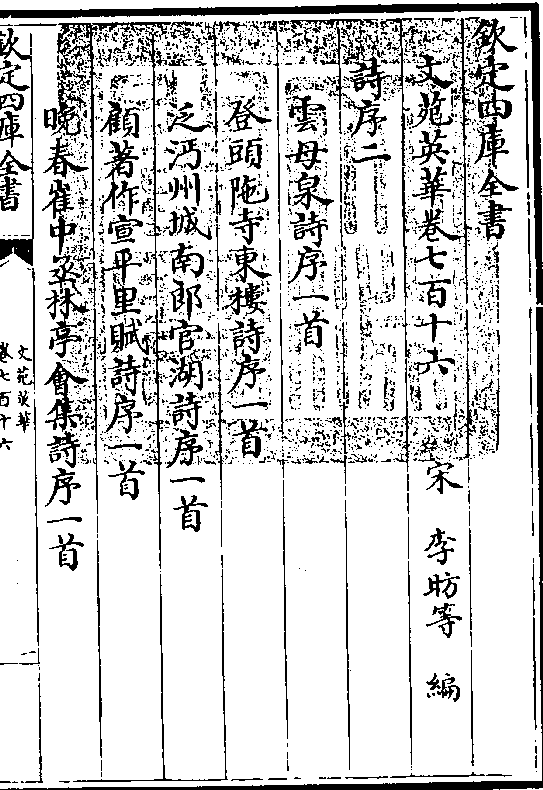 欽定四庫全書
文苑英華卷七百十六
宋 李昉等 編
詩序二
雲母泉詩序一首
登頭陁寺東樓詩序一首
泛沔州城南郎官湖詩序一首
顧著作宣平里賦詩序一首
晚春崔中丞林亭會集詩序一首
欽定四庫全書
文苑英華
卷七百十六